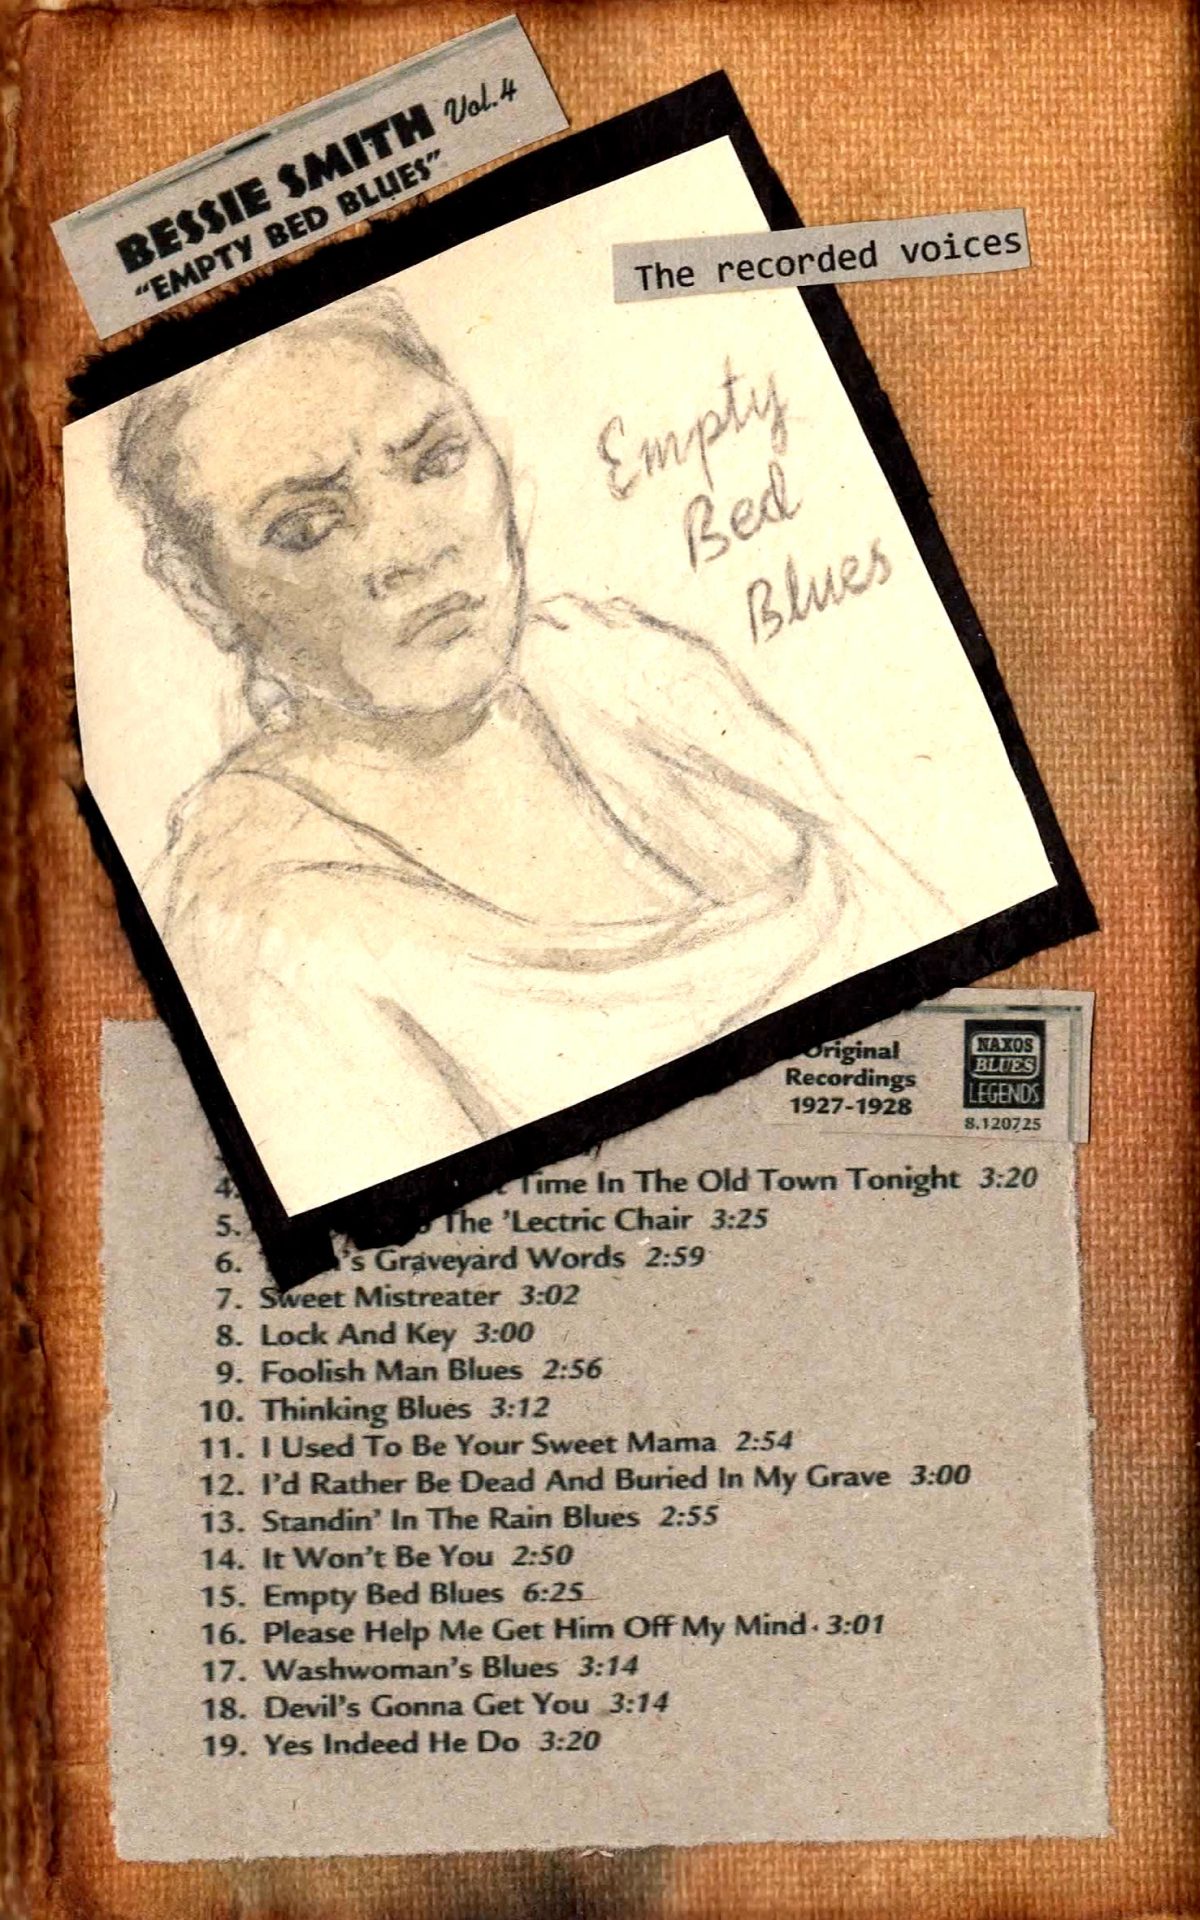 BESSIE SMITH Vol.4
"EMPTY BED BLUES"
The recorded voices
Empty
Bed
Blues
Original
Recordings
1927-1928
NAXOS
BLUES
LEGENDS
8.120725
4. Time In The Old Town Tonight 3:20
5. The 'Lectric Chair 3:25
6. Graveyard Words 2:59
7. Sweet Mistreater 3:02
8. Lock And Key 3:00
9. Foolish Man Blues 2:56
10. Thinking Blues 3:12
11. I Used To Be Your Sweet Mama 2:54
12. I'd Rather Be Dead And Buried In My Grave 3:00
13. Standin' In The Rain Blues 2:55
14. It Won't Be You 2:50
15. Empty Bed Blues 6:25
16. Please Help Me Get Him Off My Mind 3:01
17. Washwoman's Blues 3:14
18. Devil's Gonna Get You 3:14
19. Yes Indeed He Do 3:20